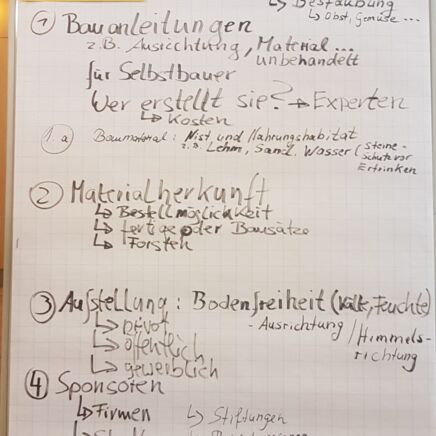 ↳ Bestäubung
↳ Obst, Gemüse ...
① Bauanleitungen
z.B. Ausrichtung, Material ...
unbehandelt
für Selbstbauer
Wer erstellt sie? → Experten
↳ Kosten
1.a Baumaterial: Nist und Nahrungshabitat
z.B. Lehm, Sand, Wasser (Steine-
Schutz vor
Ertrinken
② Materialherkunft
↳ Bestellmöglichkeit
↳ fertige oder Bausätze
↳ Forsten
③ Aufstellung: Bodenfreiheit (Kälte, Feuchte)
↳ privat
- Ausrichtung / Himmels-
richtung
↳ öffentlich
↳ gewerblich
④ Sponsoren
↳ Firmen ↳ Stiftungen